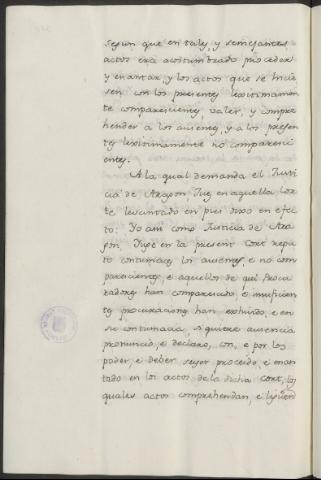 segun que en tales, y semejantes
actos era acostumbrado proceder
y enantar, y los actos que se hicie
sen con los presentes legitimamen
te comparecientes, valer, y compre
hender a los ausentes, y a los presen
tes legitimamente no comparecien
tes.
A la qual demanda el Justi
cia de Aragon, Juez en aquella Cor
te levantado en pies dixo en efec
to: Yo asi como Justicia de Ara
gon, Juge en la present Cort repu
to contumaces los ausentes e no com
parecientes, e aquellos de qui Procu
radores han comparecido, e insuficien
tes procuraciones han exhivido, e en
su contumacia, siquiere ausencia
pronuncio, e declaro, con, e por los
poder, e deber seyer proceido, e enan
tado en los actos de la dicha Cort, los
quales actos comprehendan, e liguen